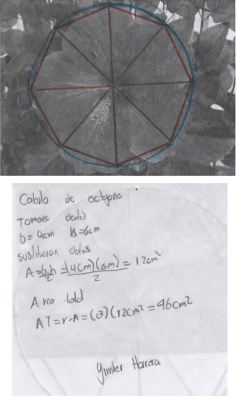 Calculo de octgono
Tomois datos
b= 4cm h=6cm
sustitucion datos
A=b.h/2 = (4cm)(6cm)/2 = 12cm²
Area total
AT=r.A=(8)(12cm²=96cm²
Yimler Herrera